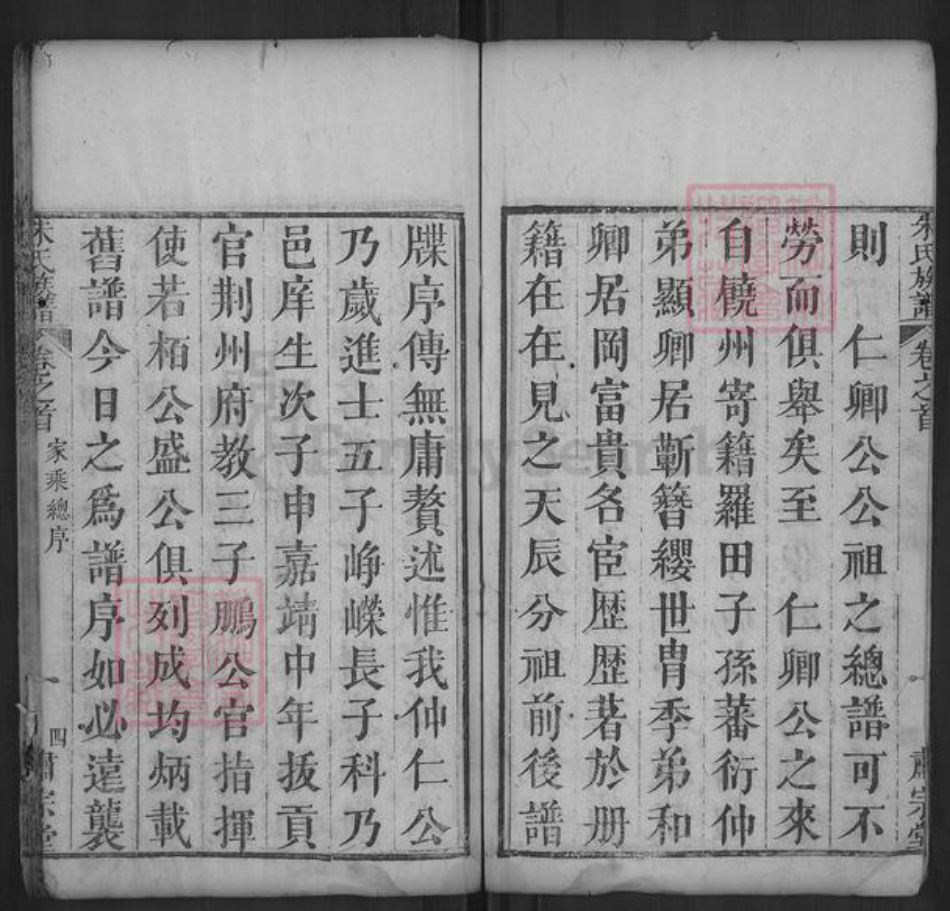 則　仁卿公公祖之總譜可不
勞而俱舉矣至　仁卿公之來
自饒州寄籍羅田子孫蕃衍仲
弟顯卿居蘄簪纓世胄季弟和
卿居岡富貴名宦歷歷著於册
籍在在見之天辰分祖前後譜
牒序傳無庸贅述惟我仲仁公
乃歲進士五子崢嶸長子科乃
邑庠生次子申嘉靖中年拔貢
官荆州府教三子鵬公官指揮
使若栢公盛公俱列成均炳載
舊譜今日之爲譜序如必遠襲
朱氏族譜　卷之首　家乘總序　四　肅宗堂
朱氏族譜　卷之首　肅宗堂